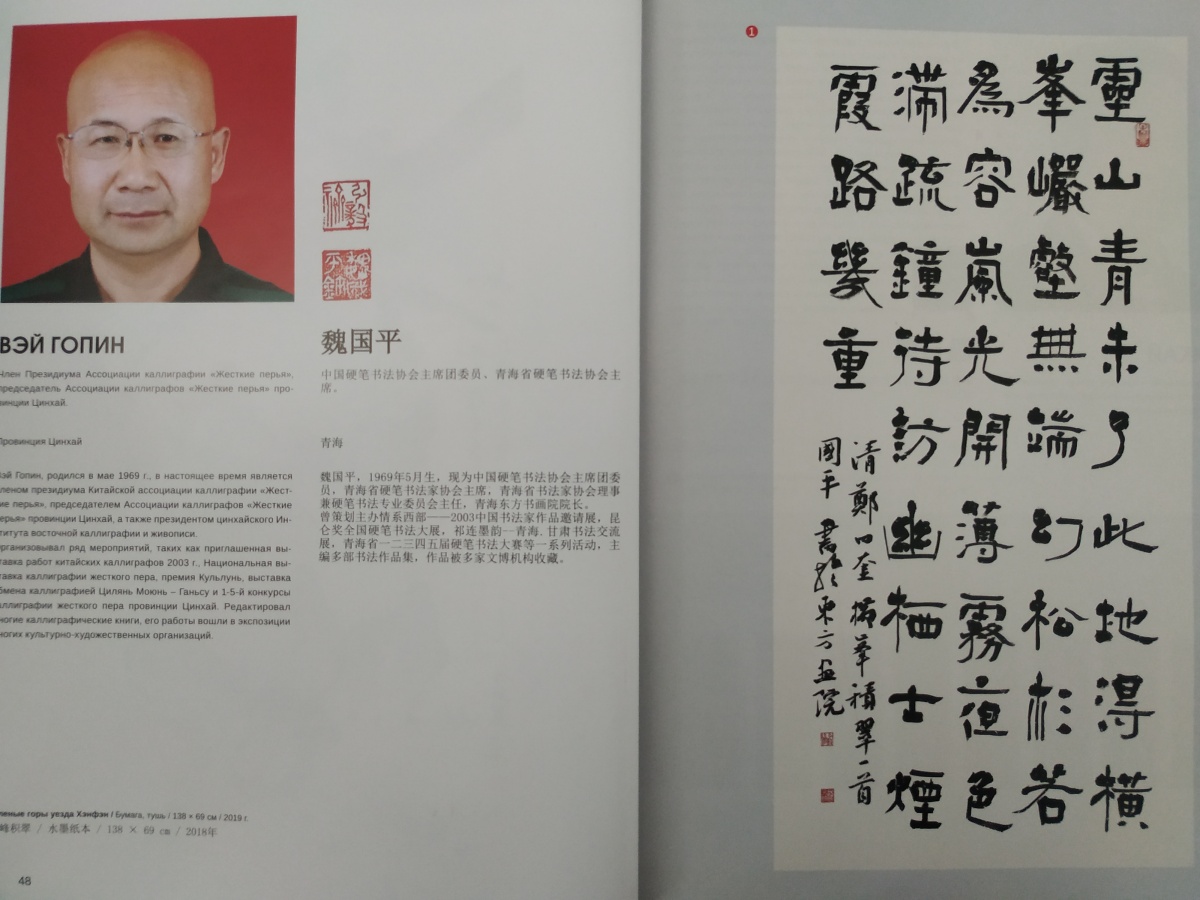 ВЭЙ ГОПИН
Член Президиума Ассоциации каллиграфии «Жесткие перья»,
председатель Ассоциации каллиграфов «Жесткие перья» про-
винции Цинхай.
Провинция Цинхай
эй Гопин, родился в мае 1969 г., в настоящее время является
леном президиума Китайской ассоциации каллиграфии «Жест-
ие перья», председателем Ассоциации каллиграфов «Жесткие
ерья» провинции Цинхай, а также президентом цинхайского Ин-
титута восточной каллиграфии и живописи.
рганизовывал ряд мероприятий, таких как приглашенная вы-
тавка работ китайских каллиграфов 2003 г., Национальная вы-
тавка каллиграфии жесткого пера, премия Кульлунь, выставка
бмена каллиграфией Цилянь Моюнь – Ганьсу и 1-5-й конкурсы
аллиграфии жесткого пера провинции Цинхай. Редактировал
ногие каллиграфические книги, его работы вошли в экспозиции
ногих культурно-художественных организаций.
魏国平
中国硬笔书法协会主席团委员、青海省硬笔书法协会主
席。
青海
魏国平，1969年5月生，现为中国硬笔书法协会主席团委
员，青海省硬笔书法家协会主席，青海省书法家协会理事
兼硬笔书法专业委员会主任，青海东方书画院院长。
曾策划主办情系西部——2003中国书法家作品邀请展，昆
仑奖全国硬笔书法大展，祁连墨韵—青海.甘肃书法交流
展，青海省一二三四五届硬笔书法大赛等一系列活动，主
编多部书法作品集，作品被多家文博机构收藏。
леные горы уезда Хэнфэн / Бумага, тушь / 138 × 69 см / 2019 г.
峰积翠 / 水墨纸本 / 138 × 69 cm / 2018年
48
1
靈山青未了此地得橫
峯巖壑無端幻松杉若
為容嵐光開薄霧夜色
滯疏鐘待訪幽栖士煙
霞路幾重
清鄭日奎橫峯積翠一首
國平書於東方畫院